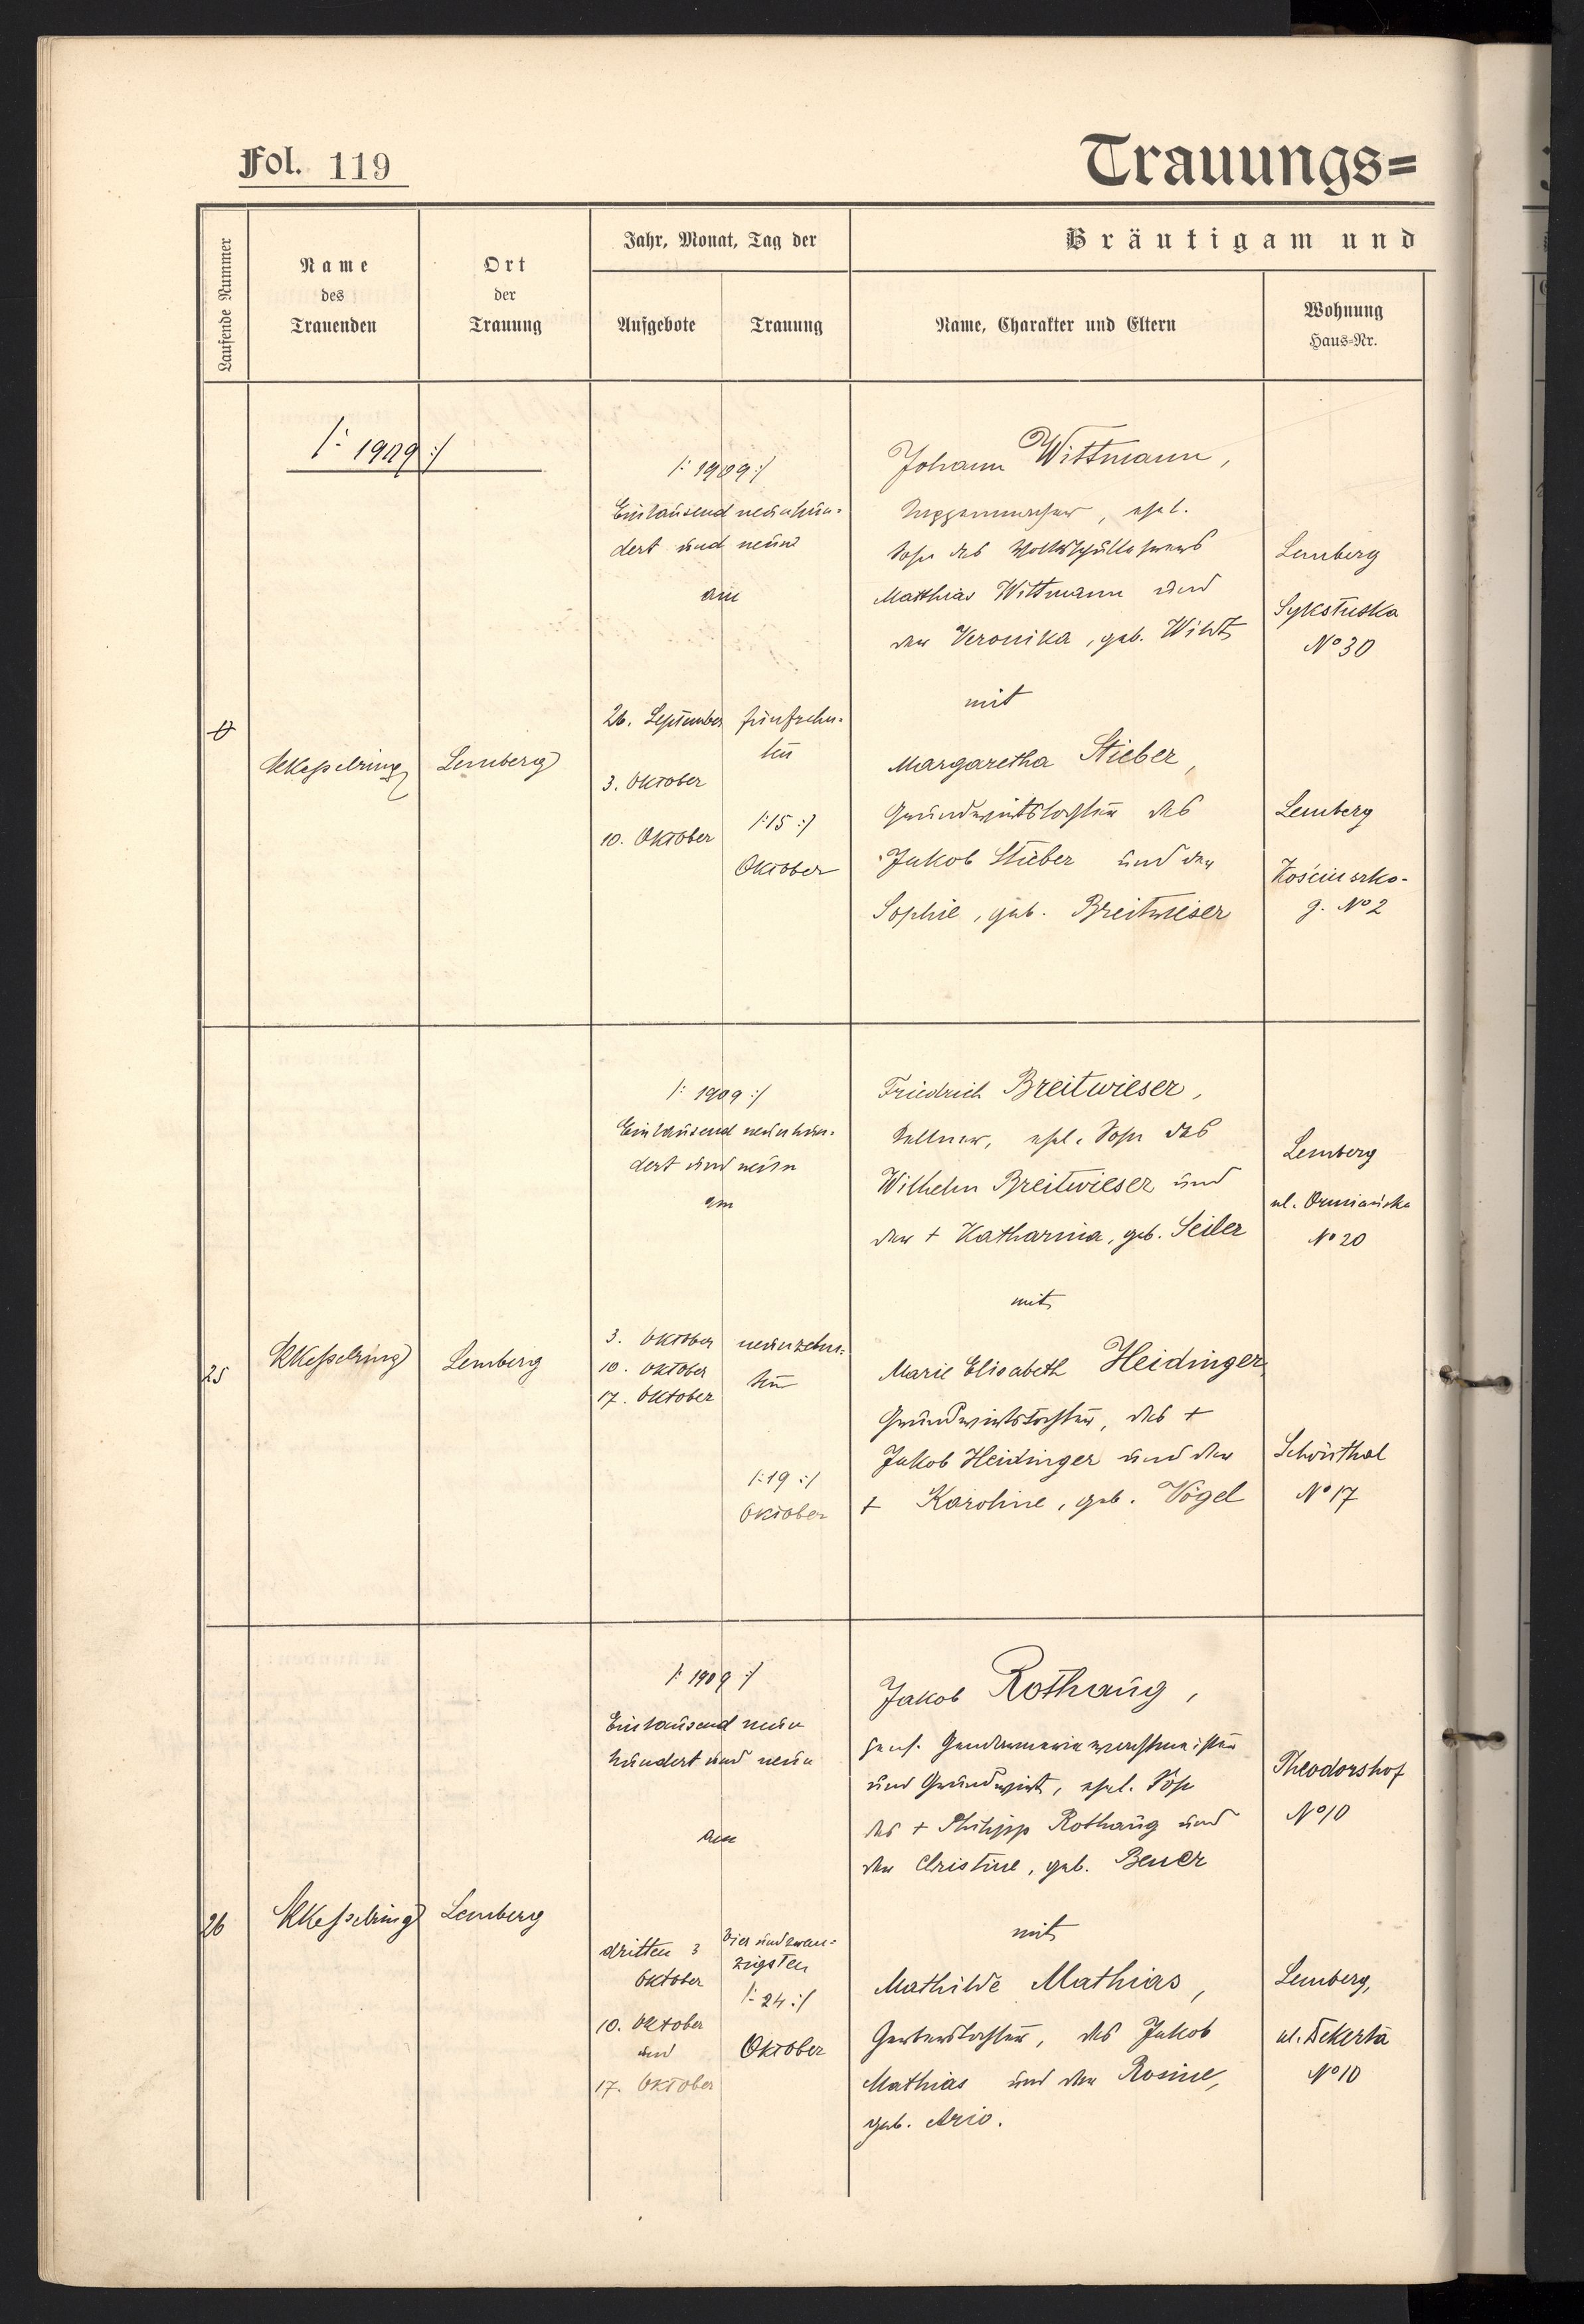 Fol. 119
Trauungs=
Laufende Nummer
Name
des
Trauenden
Ort
der
Trauung
Jahr, Monat, Tag der
Aufgebote
Trauung
Bräutigam und
Name, Charakter und Eltern
Wohnung
Haus-Nr.
/: 1909 :/
Kesselring
Lemberg
/: 1909 :/
Eintausend neunhun-
dert und neun
am
26. September
3. Oktober
10. Oktober
fünfzehn-
ten
/: 15 :/
Oktober
Johann Wittmann,
ehel.
Sohn des Volksschullehrers
Matthias Wittmann und
der Veronika, geb.
mit
Margaretha Stieber,
Grundwirtstochter des
Jakob Stieber und der
Sophie, geb. Breitwieser
Lemberg
Sykstuska
No 30
Lemberg
Kościuszko-
g. No 2
25
Kesselring
Lemberg
/: 1909 :/
Eintausend neunhun-
dert und neun
am
3. Oktober
10. Oktober
17. Oktober
neunzehn-
ten
/: 19 :/
Oktober
Friedrich Breitwieser,
Kellner, ehel. Sohn des
Wilhelm Breitwieser und
der + Katharina, geb. Seiler
mit
Marie Elisabeth Heidinger,
Grundwirtstochter, des +
Jakob Heidinger und der
+ Karoline, geb. Vogel
Lemberg
ul. Ormiańska
No 20
Schönthal
No 17
26
Kesselring
Lemberg
/: 1909 :/
Eintausend neun
hundert und neun
am
dritten 3
Oktober
10. Oktober
und
17. Oktober
Vier und zwan-
zigsten
/: 24 :/
Oktober
Jakob Rothaug,
pens. Gendarmeriewachtmeister
und Grundwirt, ehel. Sohn
des + Philipp Rothaug und
der Christine, geb.
mit
Mathilde Mathias,
Gerberstochter, des Jakob
Mathias und der Rosine,
geb. Ario.
Theodorshof
No 10
Lemberg,
ul.
No 10